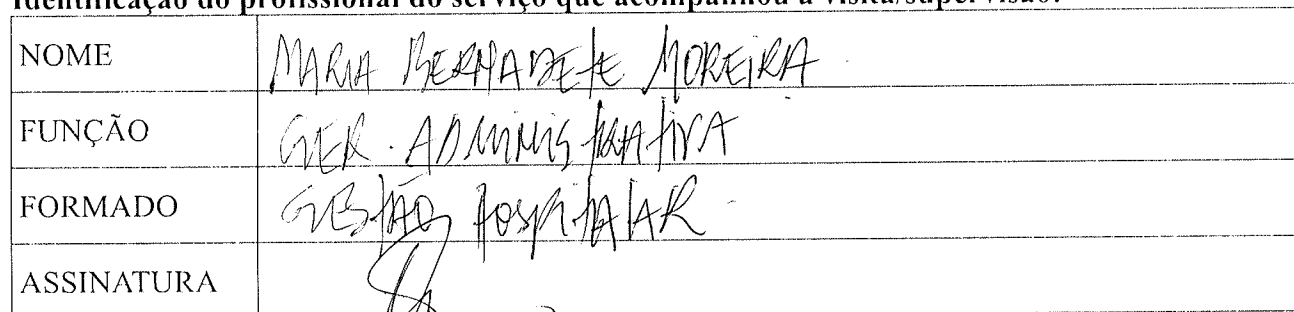 Identificação do profissional do serviço que acompanhou a visita/supervisão:
NOME MARIA BERNADETE MOREIRA
FUNÇÃO GER. ADMINISTRATIVA
FORMADO GESTÃO HOSPITALAR
ASSINATURA